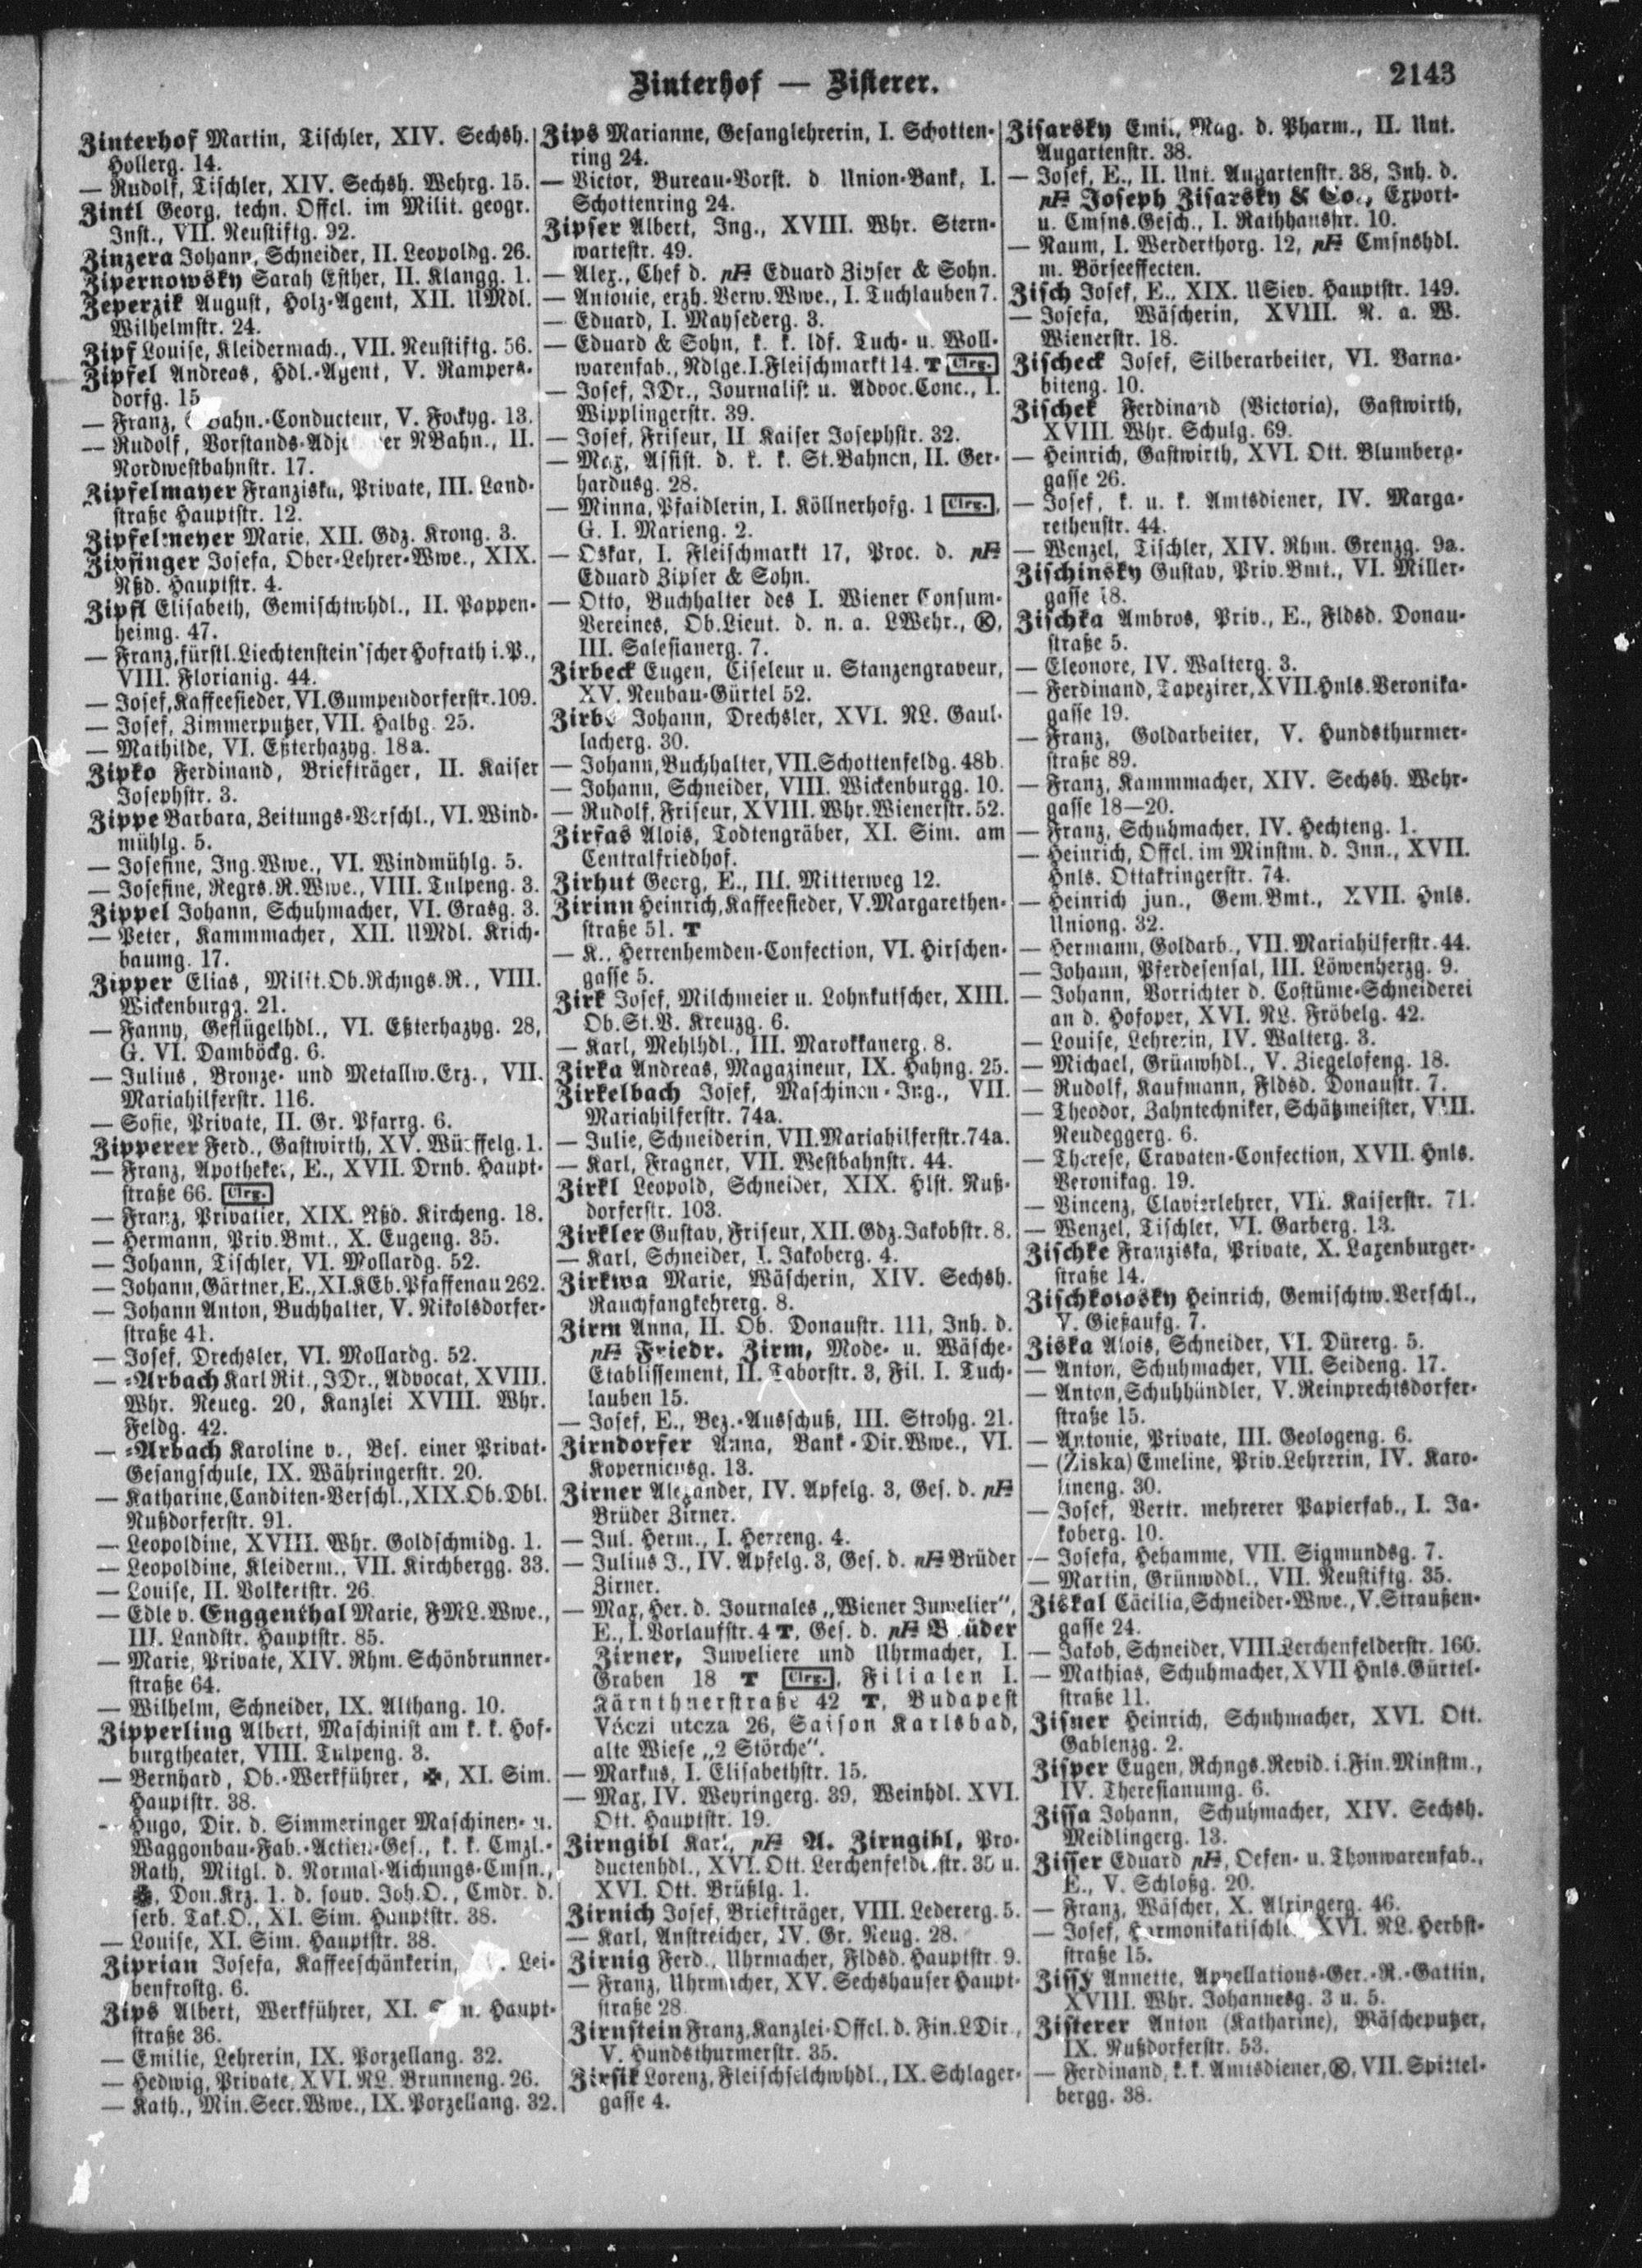 Zinterhof — Zisterer.
2143
Zinterhof Martin, Tischler, XIV. Sechsh.
Hollerg. 14.
— Rudolf, Tischler, XIV. Sechsh. Wehrg. 15.
Zintl Georg, techn. Offcl. im Milit. geogr.
Inst., VII. Neustiftg. 92.
Zinzera Johann, Schneider, II. Leopoldg. 26.
Zipernowsky Sarah Esther, II. Klangg. 1.
Zeperzik August, Holz-Agent, XII. UMdl.
Wilhelmstr. 24.
Zipf Louise, Kleidermach., VII. Neustiftg. 56.
Zipfel Andreas, Hdl.-Agent, V. Rampers-
dorfg. 15
— Franz, Bahn.-Conducteur, V. Fockyg. 13.
— Rudolf, Vorstands-Adj. der NBahn., II.
Nordwestbahnstr. 17.
Zipfelmayer Franziska, Private, III. Land-
straße Hauptstr. 12.
Zipfelmeyer Marie, XII. Gdz. Krong. 3.
Zipfinger Josefa, Ober-Lehrer-Wwe., XIX.
Nßd. Hauptstr. 4.
Zipfl Elisabeth, Gemischtwhdl., II. Pappen-
heimg. 47.
— Franz, fürstl. Liechtenstein'scher Hofrath i. P.,
VIII. Florianig. 44.
— Josef, Kaffeesieder, VI. Gumpendorferstr. 109.
— Josef, Zimmerputzer, VII. Halbg. 25.
— Mathilde, VI. Eßterhazyg. 18a.
Zipko Ferdinand, Briefträger, II. Kaiser
Josephstr. 3.
Zippe Barbara, Zeitungs-Verschl., VI. Wind-
mühlg. 5.
— Josefine, Ing. Wwe., VI. Windmühlg. 5.
— Josefine, Regrs. R. Wwe., VIII. Tulpeng. 3.
Zippel Johann, Schuhmacher, VI. Grasg. 3.
— Peter, Kammmacher, XII. UMdl. Krich-
baumg. 17.
Zipper Elias, Milit. Ob. Rchngs. R., VIII.
Wickenburgg. 21.
— Fanny, Geflügelhdl., VI. Eßterhazyg. 28,
G. VI. Damböckg. 6.
— Julius, Bronze- und Metallw. Erz., VII.
Mariahilferstr. 116.
— Sofie, Private, II. Gr. Pfarrg. 6.
Zipperer Ferd., Gastwirth, XV. Würffelg. 1.
— Franz, Apotheker, E., XVII. Drnb. Haupt-
straße 66. Clrg.
— Franz, Privatier, XIX. Nßd. Kircheng. 18.
— Hermann, Priv. Bmt., X. Eugeng. 35.
— Johann, Tischler, VI. Mollardg. 52.
— Johann, Gärtner, E., XI. KEb. Pfaffenau 262.
— Johann Anton, Buchhalter, V. Nikolsdorfer-
straße 41.
— Josef, Drechsler, VI. Mollardg. 52.
— -Arbach Karl Rit., JDr., Advocat, XVIII.
Whr. Neueg. 20, Kanzlei XVIII. Whr.
Feldg. 42.
— -Arbach Karoline v., Bes. einer Privat-
Gesangschule, IX. Währingerstr. 20.
— Katharine, Canditen-Verschl., XIX. Ob. Dbl.
Nußdorferstr. 91.
— Leopoldine, XVIII. Whr. Goldschmidg. 1.
— Leopoldine, Kleiderm., VII. Kirchbergg. 33.
— Louise, II. Volkertstr. 26.
— Edle v. Enggenthal Marie, FML. Wwe.,
III. Landstr. Hauptstr. 85.
— Marie, Private, XIV. Rhm. Schönbrunner-
straße 64.
— Wilhelm, Schneider, IX. Althang. 10.
Zipperling Albert, Maschinist am k. k. Hof-
burgtheater, VIII. Tulpeng. 3.
— Bernhard, Ob.-Werkführer, ✠, XI. Sim.
Hauptstr. 38.
— Hugo, Dir. d. Simmeringer Maschinen- u.
Waggonbau-Fab.-Actien-Ges., k. k. Cmzl.-
Rath, Mitgl. d. Normal-Aichungs-Cmsn.,
Don. Krz. 1. d. souv. Joh. O., Cmdr. d.
serb. Tak. O., XI. Sim. Hauptstr. 38.
— Louise, XI. Sim. Hauptstr. 38.
Ziprian Josefa, Kaffeeschänkerin, Lei-
benfrostg. 6.
Zips Albert, Werkführer, XI. Sim. Haupt-
straße 36.
— Emilie, Lehrerin, IX. Porzellang. 32.
— Hedwig, Private, XVI. NL. Brunneng. 26.
— Kath., Min. Secr. Wwe., IX. Porzellang. 32.
Zips Marianne, Gesanglehrerin, I. Schotten-
ring 24.
— Victor, Bureau-Vorst. d. Union-Bank, I.
Schottenring 24.
Zipser Albert, Ing., XVIII. Whr. Stern-
wartestr. 49.
— Alex., Chef d. pF Eduard Zipser & Sohn.
— Antonie, erzh. Verw. Wwe., I. Tuchlauben 7.
— Eduard, I. Maysederg. 3.
— Eduard & Sohn, k. k. ldf. Tuch- u. Woll-
warenfab., Ndlge. I. Fleischmarkt 14. T Clrg.
— Josef, JDr., Journalist u. Advoc. Conc., I.
Wipplingerstr. 39.
— Josef, Friseur, II. Kaiser Josephstr. 32.
— Max, Assist. d. k. k. St. Bahnen, II. Ger-
hardusg. 28.
— Minna, Pfaidlerin, I. Köllnerhofg. 1 Clrg.,
G. I. Marieng. 2.
— Oskar, I. Fleischmarkt 17, Proc. d. pF
Eduard Zipser & Sohn.
— Otto, Buchhalter des I. Wiener Consum-
Vereines, Ob. Lieut. d. n. a. LWehr., Ⓚ,
III. Salesianerg. 7.
Zirbeck Eugen, Ciseleur u. Stanzengraveur,
XV. Neubau-Gürtel 52.
Zirbs Johann, Drechsler, XVI. NL. Gaul-
lacherg. 30.
— Johann, Buchhalter, VII. Schottenfeldg. 48b.
— Johann, Schneider, VIII. Wickenburgg. 10.
— Rudolf, Friseur, XVIII. Whr. Wienerstr. 52.
Zirfas Alois, Todtengräber, XI. Sim. am
Centralfriedhof.
Zirhut Georg, E., III. Mitterweg 12.
Zirinn Heinrich, Kaffeesieder, V. Margarethen-
straße 51. T
— K., Herrenhemden-Confection, VI. Hirschen-
gasse 5.
Zirk Josef, Milchmeier u. Lohnkutscher, XIII.
Ob. St. V. Kreuzg. 6.
— Karl, Mehlhdl., III. Marokkanerg. 8.
Zirka Andreas, Magazineur, IX. Hahng. 25.
Zirkelbach Josef, Maschinen-Ing., VII.
Mariahilferstr. 74a.
— Julie, Schneiderin, VII. Mariahilferstr. 74a.
— Karl, Fragner, VII. Westbahnstr. 44.
Zirkl Leopold, Schneider, XIX. Hlst. Nuß-
dorferstr. 103.
Zirkler Gustav, Friseur, XII. Gdz. Jakobstr. 8.
— Karl, Schneider, I. Jakoberg. 4.
Zirkwa Marie, Wäscherin, XIV. Sechsh.
Rauchfangkehrerg. 8.
Zirm Anna, II. Ob. Donaustr. 111, Inh. d.
pF Friedr. Zirm, Mode- u. Wäsche-
Etablissement, II. Taborstr. 3, Fil. I. Tuch-
lauben 15.
— Josef, E., Bez.-Ausschuß, III. Strohg. 21.
Zirndorfer Anna, Bank-Dir. Wwe., VI.
Kopernicusg. 13.
Zirner Alexander, IV. Apfelg. 3, Ges. d. pF
Brüder Zirner.
— Jul. Herm., I. Herreng. 4.
— Julius J., IV. Apfelg. 3, Ges. d. pF Brüder
Zirner.
— Max, Her. d. Journales „Wiener Juwelier",
E., I. Vorlaufstr. 4 T, Ges. d. pF Brüder
Zirner, Juweliere und Uhrmacher, I.
Graben 18 T Clrg., Filialen I.
Kärnthnerstraße 42 T, Budapest
Váczi utcza 26, Saison Karlsbad,
alte Wiese „2 Störche".
— Markus, I. Elisabethstr. 15.
— Max, IV. Weyringerg. 39, Weinhdl. XVI.
Ott. Hauptstr. 19.
Zirngibl Karl, pF A. Zirngibl, Pro-
ductenhdl., XVI. Ott. Lerchenfelderstr. 35 u.
XVI. Ott. Brüßlg. 1.
Zirnich Josef, Briefträger, VIII. Ledererg. 5.
— Karl, Anstreicher, IV. Gr. Neug. 28.
Zirnig Ferd., Uhrmacher, Fldsd. Hauptstr. 9.
— Franz, Uhrmacher, XV. Sechshauser Haupt-
straße 28.
Zirnstein Franz, Kanzlei-Offcl. d. Fin. LDir.,
V. Hundsthurmerstr. 35.
Zirsik Lorenz, Fleischselchwhdl., IX. Schlager-
gasse 4.
Zisarsky Emil, Mag. d. Pharm., II. Unt.
Augartenstr. 38.
— Josef, E., II. Unt. Augartenstr. 38, Inh. d.
pF Joseph Zisarsky & Co., Export-
u. Cmsns. Gesch., I. Rathhausstr. 10.
— Naum, I. Werderthorg. 12, pF Cmsnshdl.
m. Börseeffecten.
Zisch Josef, E., XIX. USiev. Hauptstr. 149.
— Josefa, Wäscherin, XVIII. N. a. W.
Wienerstr. 18.
Zischeck Josef, Silberarbeiter, VI. Barna-
biteng. 10.
Zischek Ferdinand (Victoria), Gastwirth,
XVIII. Whr. Schulg. 69.
— Heinrich, Gastwirth, XVI. Ott. Blumberg-
gasse 26.
— Josef, k. u. k. Amtsdiener, IV. Marga-
rethenstr. 44.
— Wenzel, Tischler, XIV. Rhm. Grenzg. 9a.
Zischinsky Gustav, Priv. Bmt., VI. Miller-
gasse 18.
Zischka Ambros, Priv., E., Fldsd. Donau-
straße 5.
— Eleonore, IV. Walterg. 3.
— Ferdinand, Tapezirer, XVII. Hnls. Veronika-
gasse 19.
— Franz, Goldarbeiter, V. Hundsthurmer-
straße 89.
— Franz, Kammmacher, XIV. Sechsh. Wehr-
gasse 18—20.
— Franz, Schuhmacher, IV. Hechteng. 1.
— Heinrich, Offcl. im Minstm. d. Inn., XVII.
Hnls. Ottakringerstr. 74.
— Heinrich jun., Gem. Bmt., XVII. Hnls.
Uniong. 32.
— Hermann, Goldarb., VII. Mariahilferstr. 44.
— Johann, Pferdesensal, III. Löwenherzg. 9.
— Johann, Vorrichter d. Costüme-Schneiderei
an d. Hofoper, XVI. NL. Fröbelg. 42.
— Louise, Lehrerin, IV. Walterg. 3.
— Michael, Grünwhdl., V. Ziegelofeng. 18.
— Rudolf, Kaufmann, Fldsd. Donaustr. 7.
— Theodor, Zahntechniker, Schätzmeister, VIII.
Neudeggerg. 6.
— Therese, Cravaten-Confection, XVII. Hnls.
Veronikag. 19.
— Vincenz, Clavierlehrer, VII. Kaiserstr. 71.
— Wenzel, Tischler, VI. Garberg. 13.
Zischke Franziska, Private, X. Laxenburger-
straße 14.
Zischkowsky Heinrich, Gemischtw. Verschl.,
V. Gießaufg. 7.
Ziska Alois, Schneider, VI. Dürerg. 5.
— Anton, Schuhmacher, VII. Seideng. 17.
— Anton, Schuhhändler, V. Reinprechtsdorfer-
straße 15.
— Antonie, Private, III. Geologeng. 6.
— (Žiska) Emeline, Priv. Lehrerin, IV. Karo-
lineng. 30.
— Josef, Vertr. mehrerer Papierfab., I. Ja-
koberg. 10.
— Josefa, Hebamme, VII. Sigmundsg. 7.
— Martin, Grünwddl., VII. Neustiftg. 35.
Ziskal Cäcilia, Schneider-Wwe., V. Straußen-
gasse 24.
— Jakob, Schneider, VIII. Lerchenfelderstr. 160.
— Mathias, Schuhmacher, XVII Hnls. Gürtel-
straße 11.
Zisner Heinrich, Schuhmacher, XVI. Ott.
Gablenzg. 2.
Zisper Eugen, Rchngs. Revid. i. Fin. Minstm.,
IV. Theresianumg. 6.
Zissa Johann, Schuhmacher, XIV. Sechsh.
Meidlingerg. 13.
Zisser Eduard pF, Oefen- u. Thonwarenfab.,
E., V. Schloßg. 20.
— Franz, Wäscher, X. Alxingerg. 46.
— Josef, Harmonikatischler, XVI. NL. Herbst-
straße 15.
Zissy Annette, Appellations-Ger.-R.-Gattin,
XVIII. Whr. Johannesg. 3 u. 5.
Zisterer Anton (Katharine), Wäscheputzer,
IX. Nußdorferstr. 53.
— Ferdinand, k. k. Amtsdiener, Ⓚ, VII. Spittel-
bergg. 38.